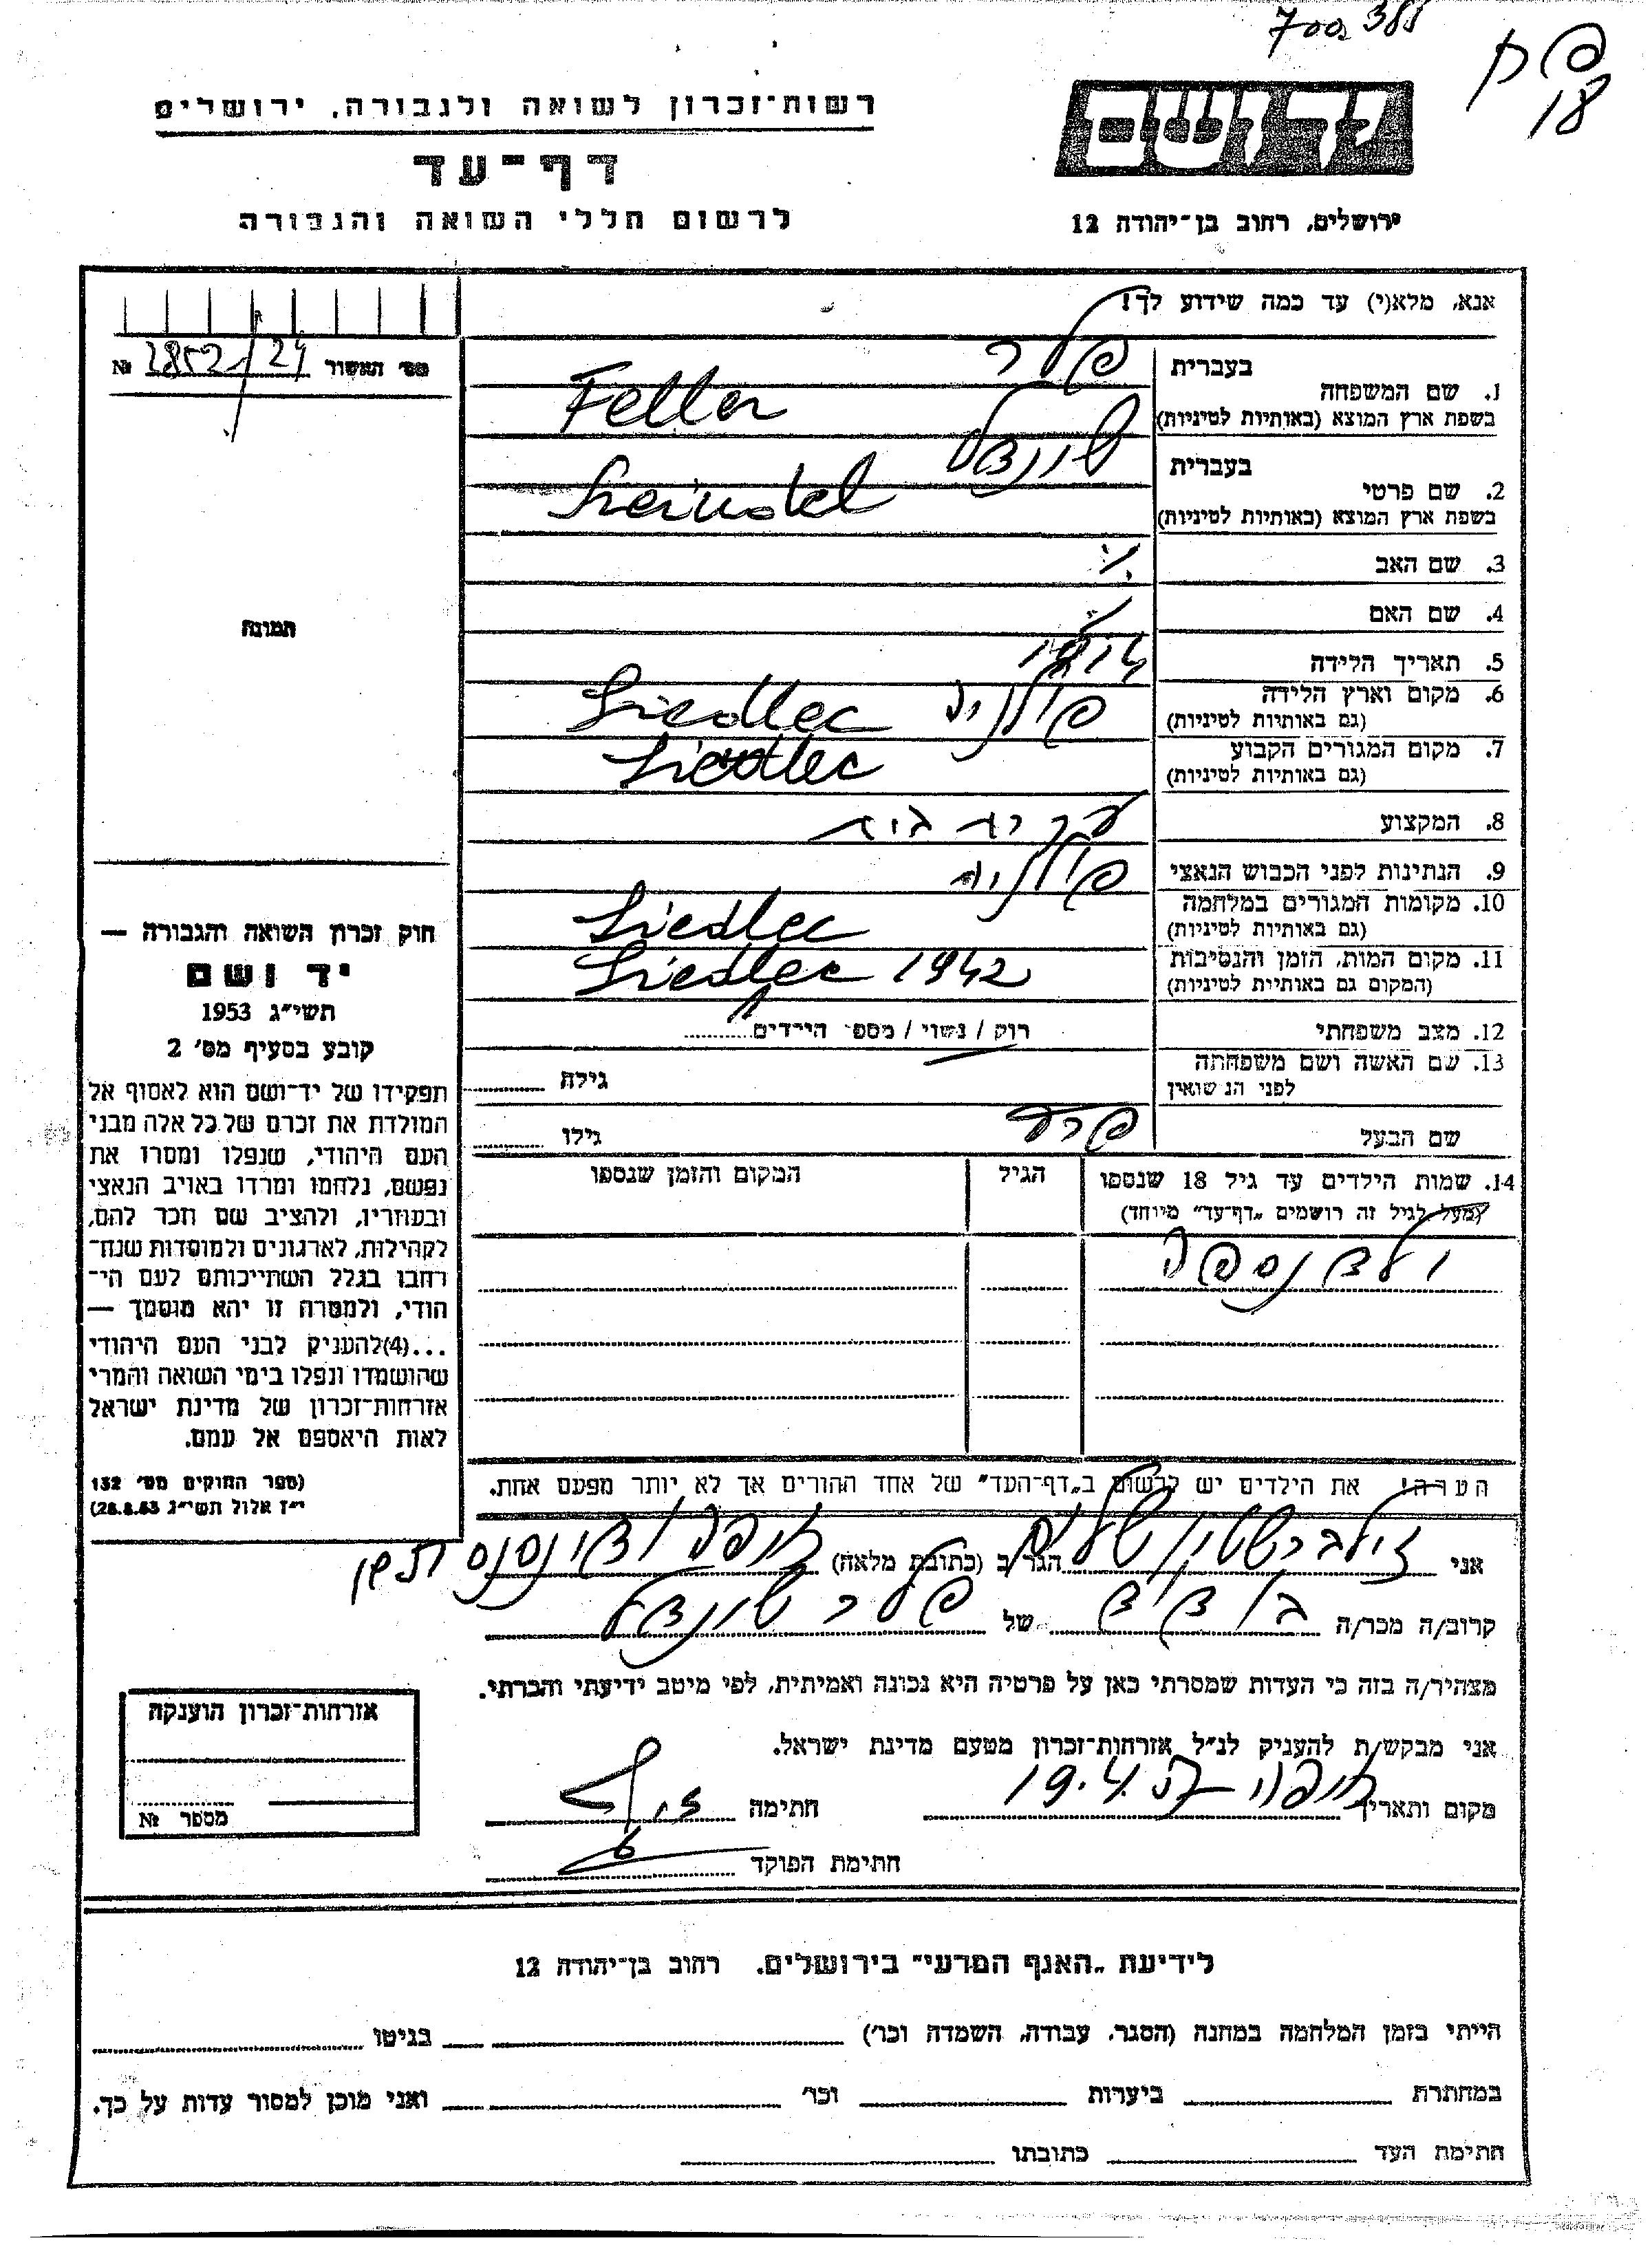 רשות־זכרון לשואה ולגבורה, ירושלים
דף־עד
לרשום חללי השואה והגבורה
יד ושם
ירושלים, רחוב בן־יהודה 12
18
אנא, מלא(י) עד כמה שידוע לך!
מס׳ האשור 2852/24 №
1. שם המשפחה
בעברית פלר
בשפת ארץ המוצא (באותיות לטיניות) Feller
2. שם פרטי
בעברית שינדל
בשפת ארץ המוצא (באותיות לטיניות)
3. שם האב
4. שם האם
5. תאריך הלידה 1914
6. מקום וארץ הלידה
(גם באותיות לטיניות) פולניה Siedlec
7. מקום המגורים הקבוע
(גם באותיות לטיניות) Siedlec
8. המקצוע עקרת בית
9. הנתינות לפני הכבוש הנאצי פולנית
10. מקומות המגורים במלחמה
(גם באותיות לטיניות) Siedlec
11. מקום המות, הזמן והנסיבות
(המקום גם באותיות לטיניות) Siedlec 1942
12. מצב משפחתי רוק / נשוי / מספר הילדים 1
13. שם האשה ושם משפחתה
לפני הנשואין גילה
שם הבעל גילו
14. שמות הילדים עד גיל 18 שנספו
(מעל לגיל זה רושמים „דף־עד" מיוחד)
הגיל
המקום והזמן שנספו
הערה: את הילדים יש לרשום ב„דף־העד" של אחד ההורים אך לא יותר מפעם אחת.
תמונה
חוק זכרון השואה והגבורה —
יד ושם
תשי״ג 1953
קובע בסעיף מס׳ 2
תפקידו של יד־ושם הוא לאסוף אל
המולדת את זכרם של כל אלה מבני
העם היהודי, שנפלו ומסרו את
נפשם, נלחמו ומרדו באויב הנאצי
ובעוזריו, ולהציב שם וזכר להם,
לקהילות, לארגונים ולמוסדות שנח־
רבו בגלל השתייכותם לעם הי־
הודי, ולמטרה זו יהא מוסמך —
...(4)להעניק לבני העם היהודי
שהושמדו ונפלו בימי השואה והמרי
אזרחות־זכרון של מדינת ישראל
לאות היאספם אל עמם.
(ספר החוקים מס׳ 132
י״ז אלול תשי״ג 28.8.53)
אני זילברשטין שלום הגר ב (כתובת מלאה) חיפה
קרוב/ה מכר/ה בן דוד של פלר שינדל
מצהיר/ה בזה כי העדות שמסרתי כאן על פרטיה היא נכונה ואמיתית, לפי מיטב ידיעתי והכרתי.
אני מבקש/ת להעניק לנ״ל אזרחות־זכרון מטעם מדינת ישראל.
מקום ותאריך חיפה 19.4. חתימה
חתימת הפוקד
אזרחות־זכרון הוענקה
מספר №
לידיעת „האגף המדעי" בירושלים. רחוב בן־יהודה 12
הייתי בזמן המלחמה במחנה (הסגר, עבודה, השמדה וכו׳) בגיטו
במחתרת ביערות וכו׳ ואני מוכן למסור עדות על כך.
חתימת העד כתובתו